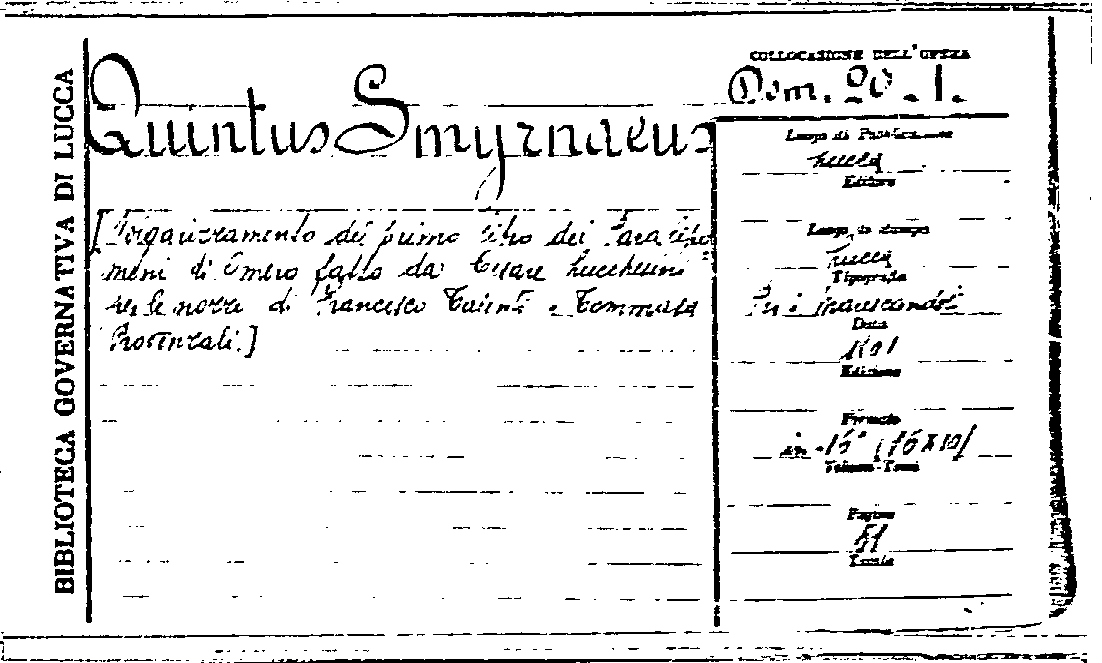 BIBLIOTECA GOVERNATIVA DI LUCCA
Quintus Smyrnaeus
COLLOCAZIONE DELL'OPERA
Dom. 20. 1.
[Volgarizzamento del primo libro dei Paralipo
meni di Omero fatto da Cesare Lucchesini
per le nozze di Francesco Talenti e Tommasa
Provenzali.]
Luogo di Pubblicazione
Lucca
Editore
Luogo di stampa
Lucca
Tipografia
Data
1801
Edizione
Formato
in-16° (16X10)
Volumi-Tomi
Pagine
51
Tavole